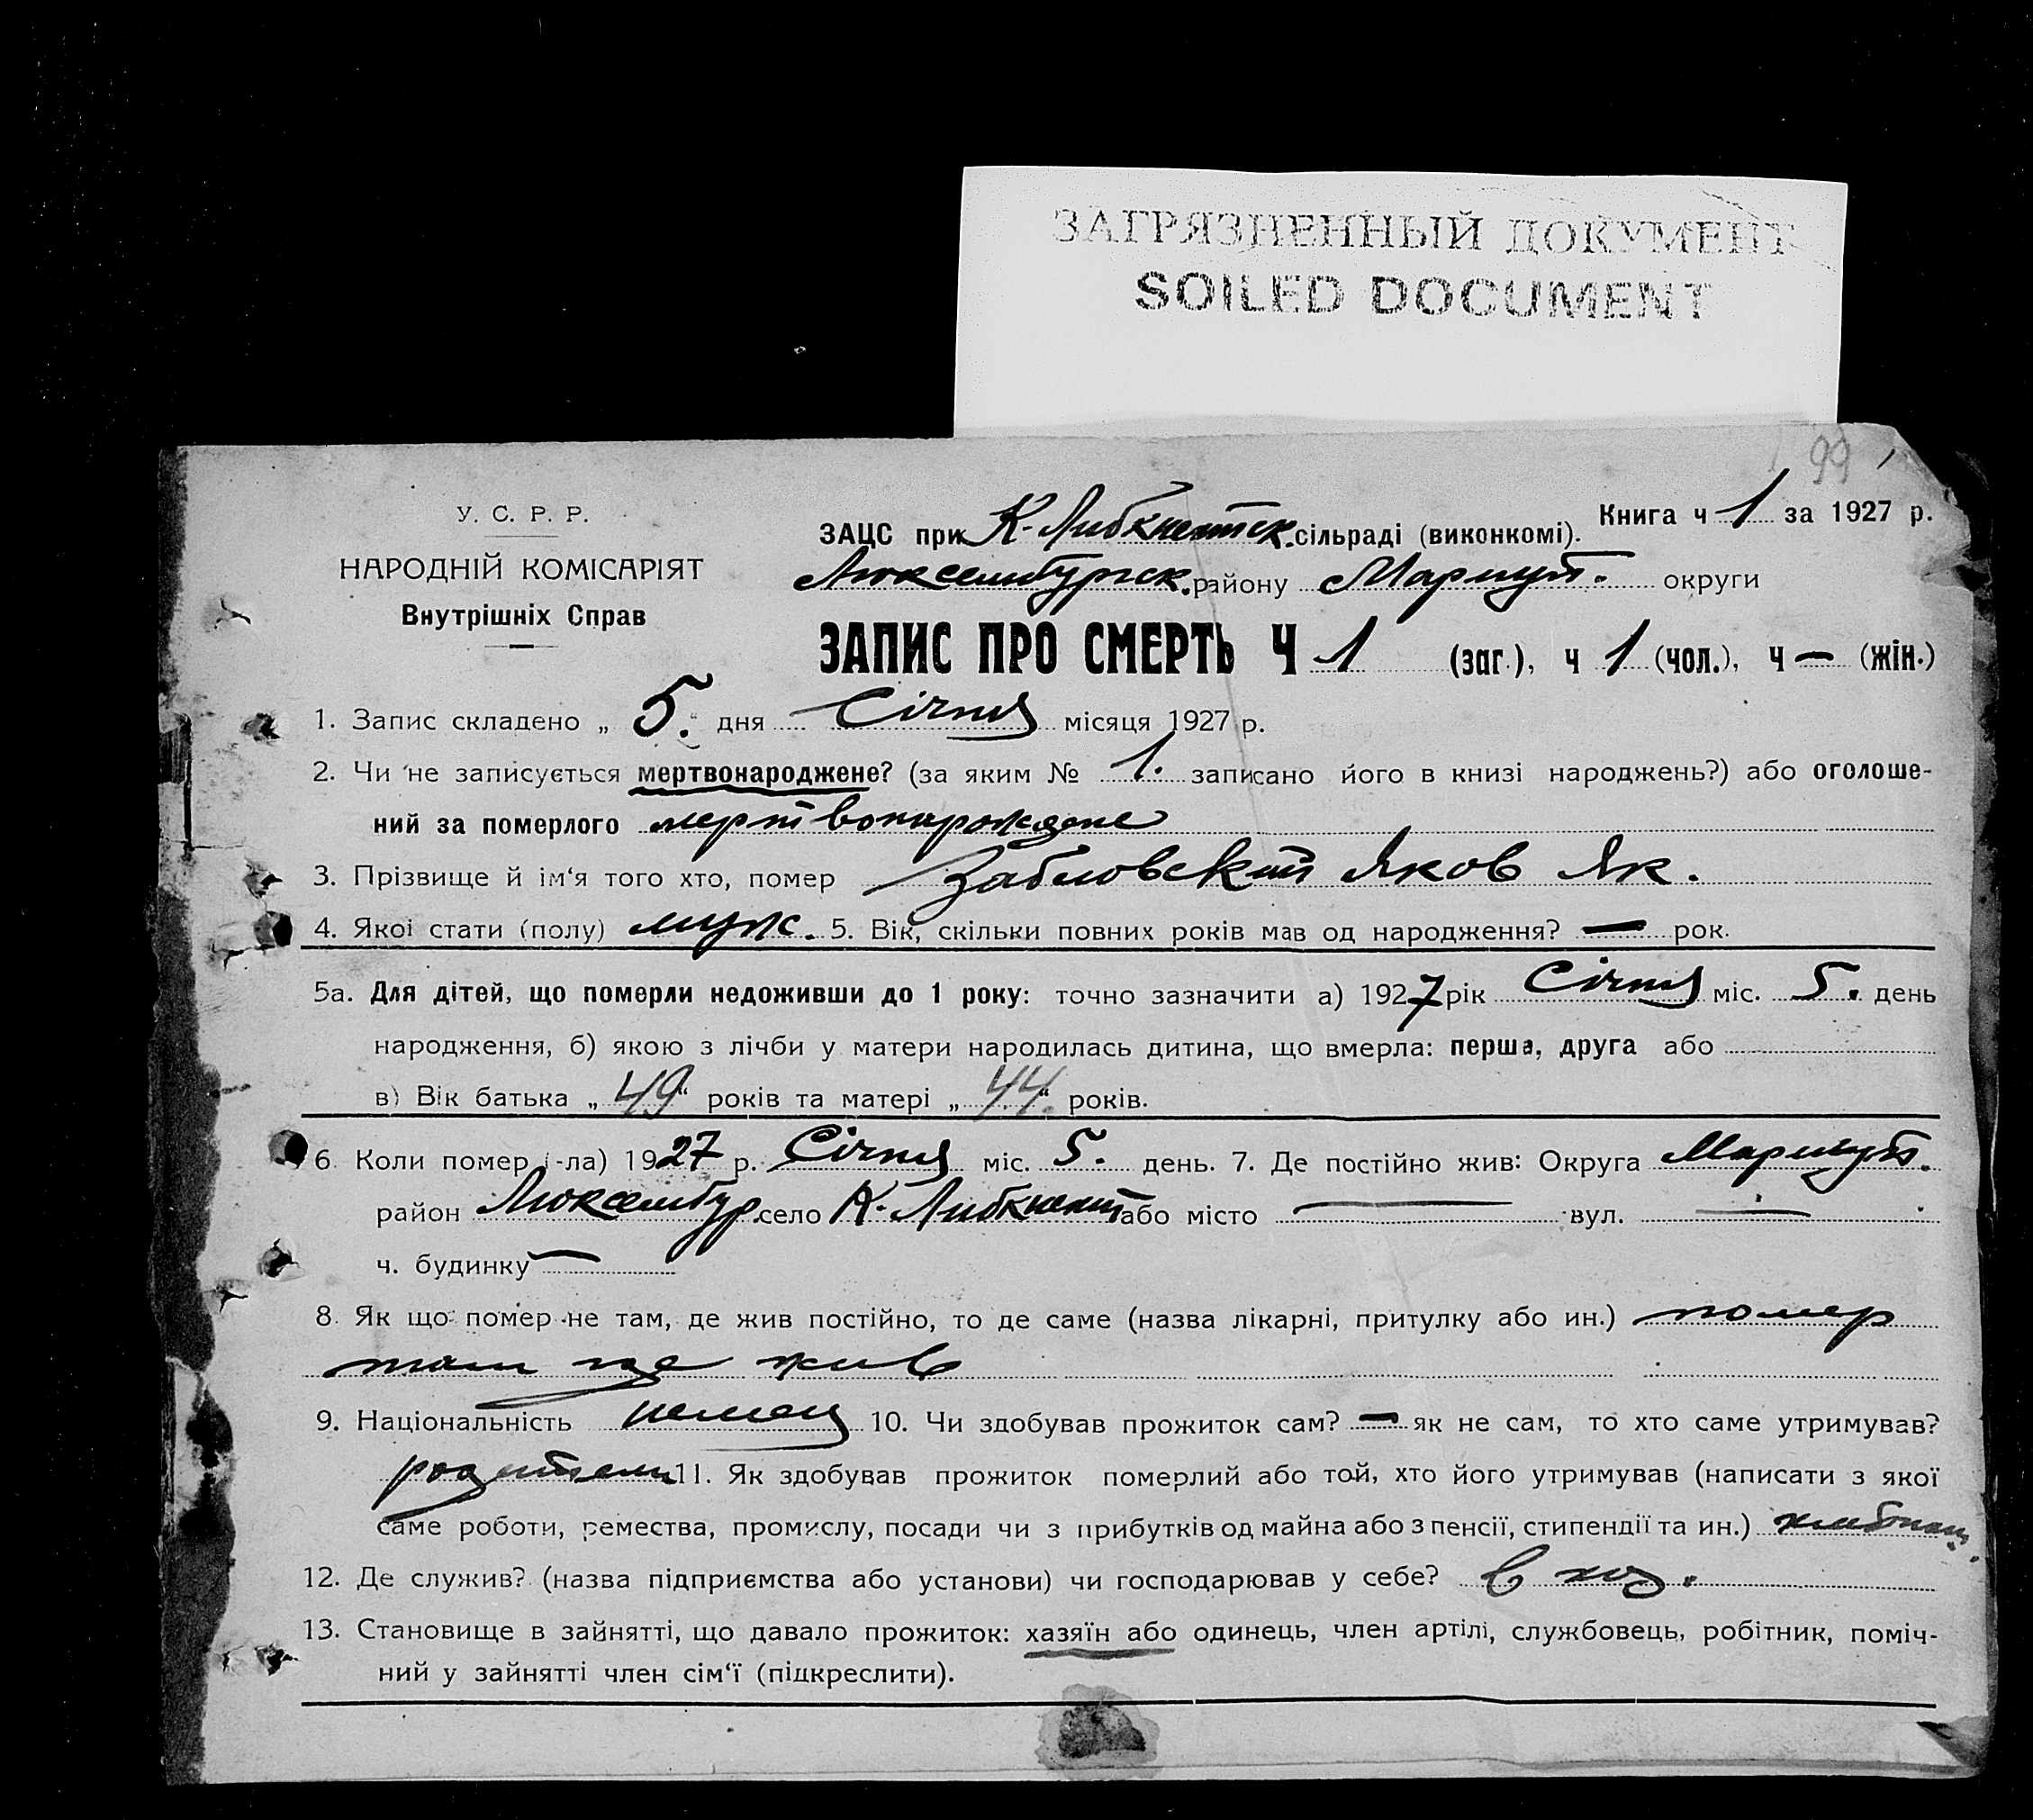 ЗАГРЯЗНЕННЫЙ ДОКУМЕНТ
SOILED DOCUMENT
99
У. С. Р. Р.
НАРОДНІЙ КОМІСАРІЯТ
Внутрішніх Справ
Книга ч 1 за 1927 р.
ЗАЦС при К-Либкнетск. сільраді (виконкомі).
Люксембургск. району Мариуп. округи
ЗАПИС ПРО СМЕРТЬ Ч 1 (заг.), ч 1 (чол.), ч — (жін.)
1. Запис складено „ 5. дня Січня місяця 1927 р.
2. Чи не записується мертвонароджене? (за яким № 1. записано його в книзі народжень?) або оголоше-
ний за померлого мертвонарождене
3. Прізвище й ім'я того хто, помер Забловский Яков Як.
4. Якоі стати (полу) муж. 5. Вік, скільки повних років мав од народження? — рок.
5а. Для дітей, що померли недоживши до 1 року: точно зазначити а) 1927 рік Січня міс. 5. день
народження, б) якою з лічби у матери народилась дитина, що вмерла: перша, друга або
в) Вік батька „ 49 “ років та матері „ 44. “ років.
6 Коли помер (-ла) 1927 р. Січня міс. 5. день. 7. Де постійно жив: Округа Мариуп.
район Люксембур. село К-Либкнехт або місто — вул. —
ч. будинку —
8. Як що помер не там, де жив постійно, то де саме (назва лікарні, притулку або ин.) помер
там где жив
9. Національність немец 10. Чи здобував прожиток сам? — як не сам, то хто саме утримував?
родители 11. Як здобував прожиток померлий або той, хто його утримував (написати з якої
саме роботи, ремества, промислу, посади чи з прибутків од майна або з пенсії, стипендії та ин.)
12. Де служив? (назва підприємства або установи) чи господарював у себе? в хоз.
13. Становище в зайнятті, що давало прожиток: хазяїн або одинець, член артілі, службовець, робітник, поміч-
ний у зайнятті член сім'ї (підкреслити).